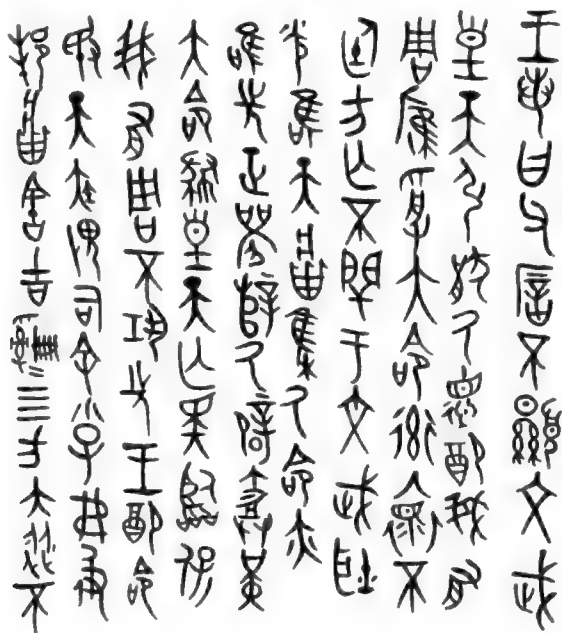 王若曰父㾓不顯文武
皇天引猒厥德配我有
周膺受大命率懷不
廷方亡不閈于文武耿
光唯天將集厥命亦
唯先正襄辥厥辟𢦚堇
大命肆皇天亡斁臨保
我有周不鞏先王配命
敃天疾畏司余小子弗及
邦將害吉四方大縱不